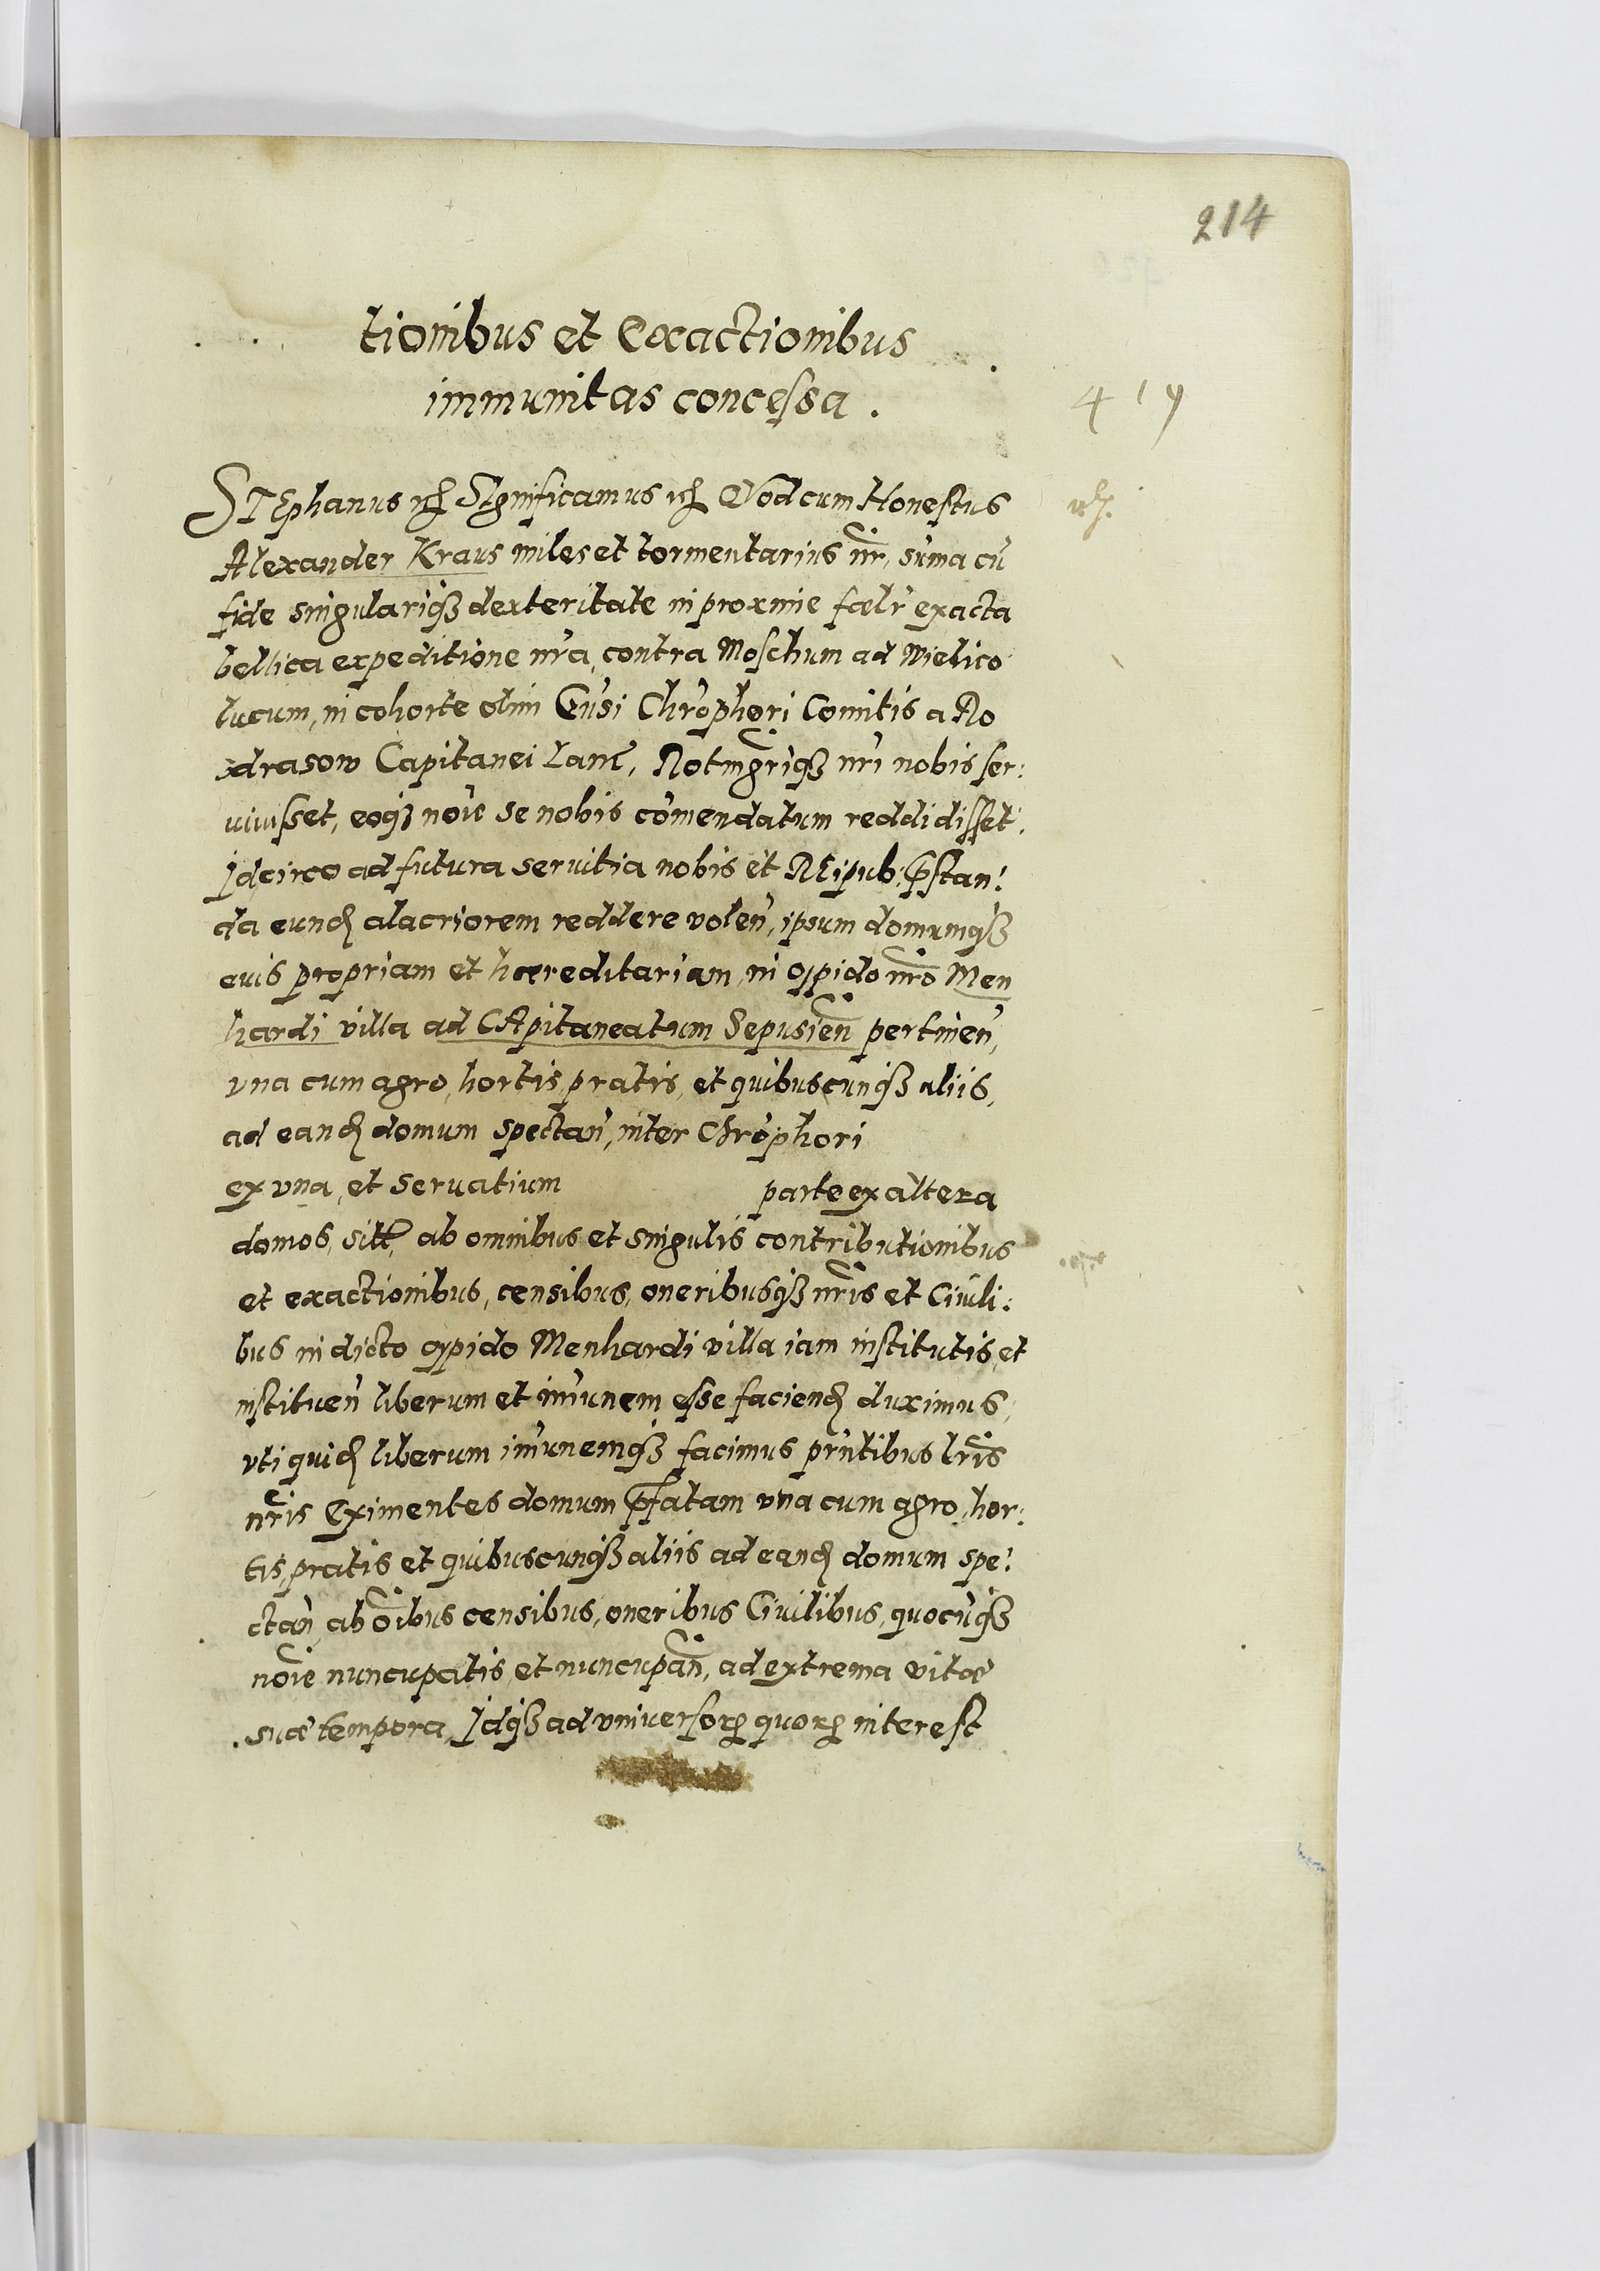 214
tionibus et Exactionibus
immunitas concessa.
419
STEphanus etc Significamus etc Qvod cum Honestus
Alexander Kraus miles et tormentarius nr, suma cu
fide singulariq3 dexteritate in proxime foelr exacta
bellica expeditione nra, contra Moschum ad Wielico
lucum, in cohorte olim Gnsi Chrophori Comitis a Ro
sdrasow Capitanei Lanc, Rotmgriq3 nri nobis ser:
uiuisset, eoq3 noie se nobis comendatum reddidisset.
Idcirco ad futura seruitia nobis et REipub: pstan:
da eund alacriorem reddere volen, ipsum domumq3
euis propriam et hoereditariam, in oppido nro Men
hardi villa ad CApitaneatum Sepusien pertinen,
vna cum agro, hortis, pratis, et quibuscunq3 aliis,
ad eand domum spectan, inter Chrophori
ex vna, et Seruatium parte ex altera
domos, sitt, ab omnibus et singulis contributionibus
et exactionibus, censibus, oneribusq3 nris et Ciuili:
bus in dicto oppido Menhardi villa iam institutis, et
instituen liberum et imunem esse faciend duximus,
vti quid liberum imunemq3 facimus prntibus lris
nris Eximentes domum pfatam vna cum agro, hor:
tis, pratis et quibuscunq3 aliis ad eand domum spe:
ctan, ab oibus censibus, oneribus Ciuilibus, quocuq3
noie nuncupatis, et nuncupan, ad extrema vitae
suae tempora, Idq3 ad vniuersor quor interest